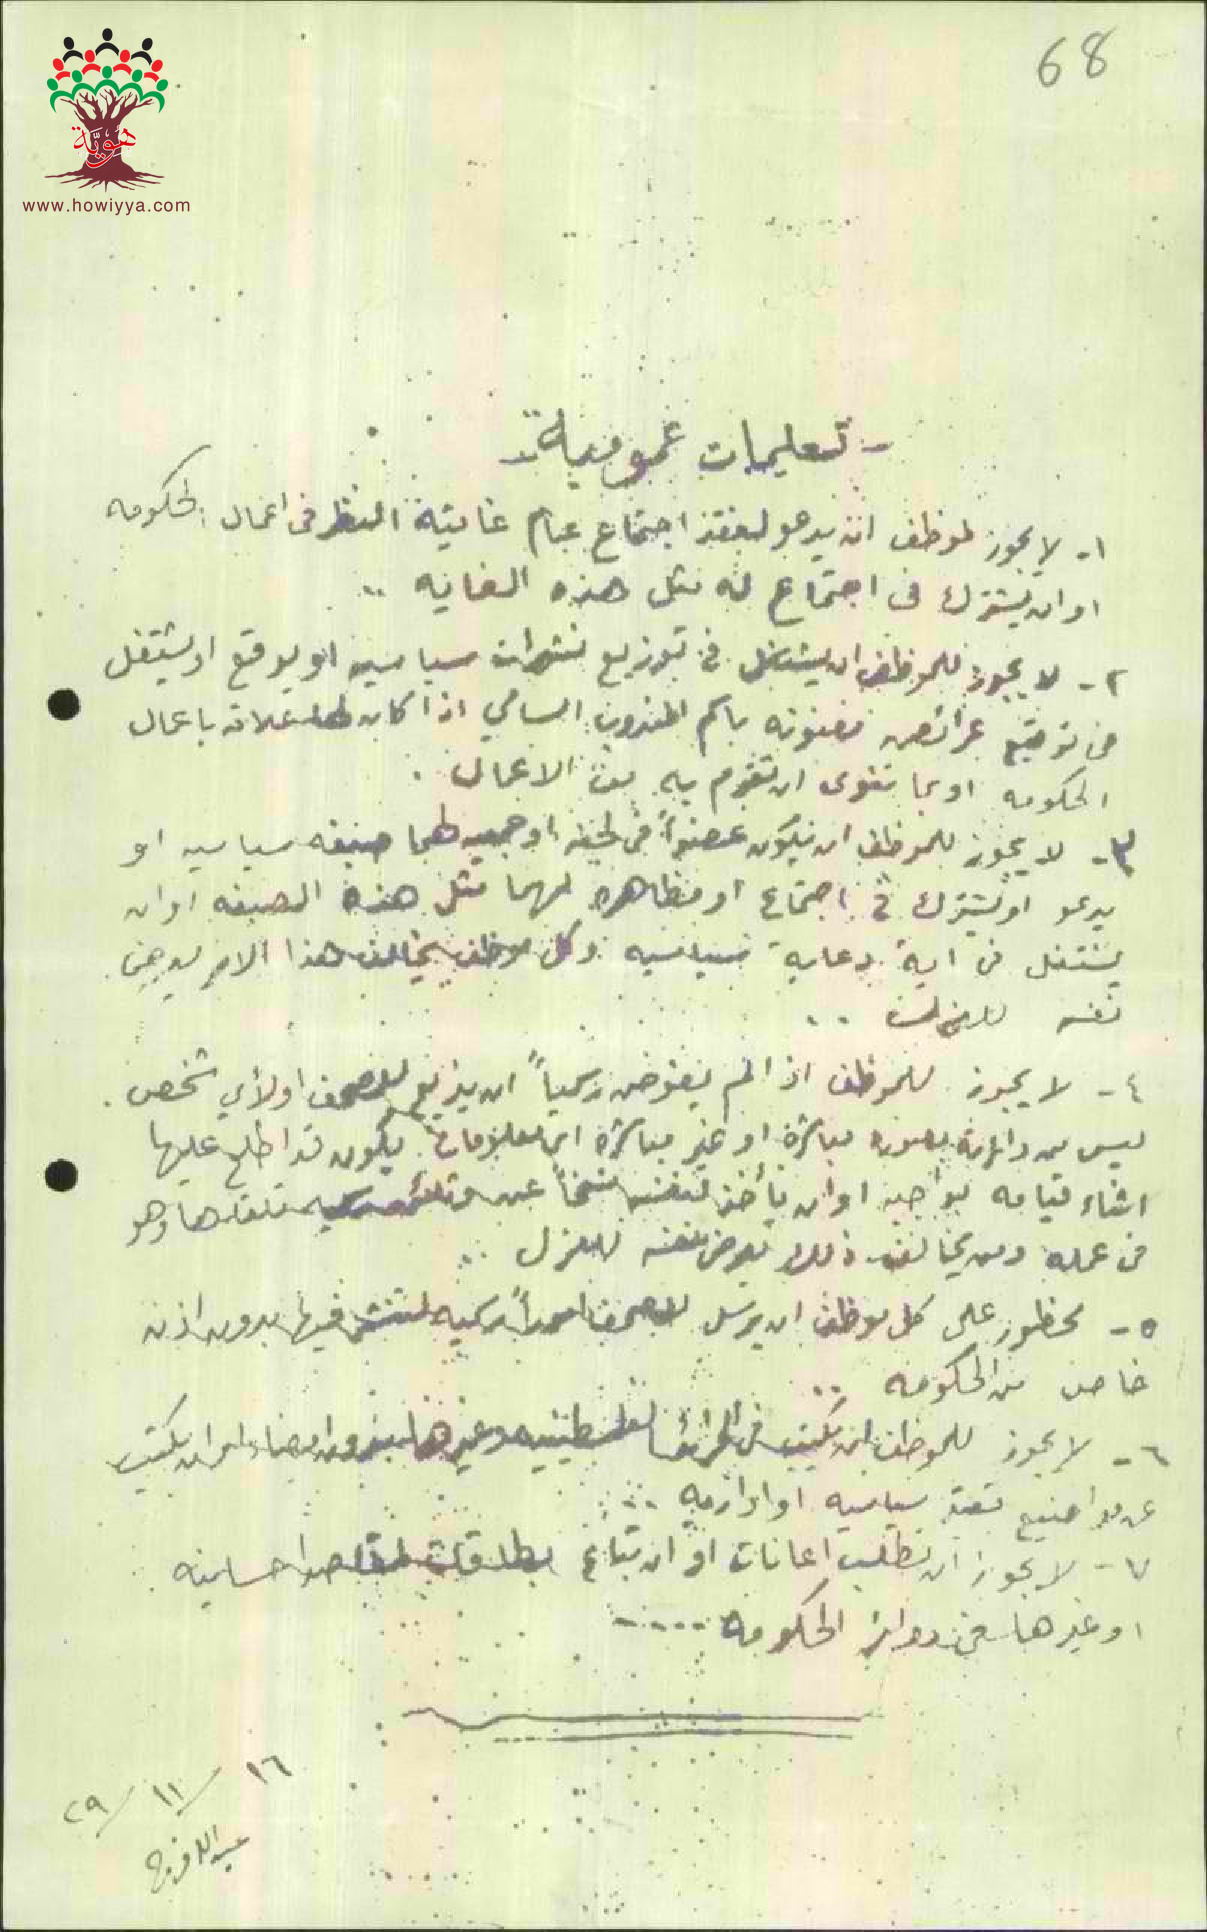 68
هوية
www.howiyya.com
- تعليمات عمومية -
١- لا يجوز لموظف ان يدعو لعقد اجتماع عام غايته النظر في اعمال الحكومه
او ان يشترك في اجتماع له مثل هذه الغايه ..
٢- لا يجوز للموظف ان يشتغل في توزيع نشرات سياسيه او يوقع او يشتغل
في توقيع عرائض معنونه باسم المندوب السامي اذا كان لها علاقه باعمال
الحكومه او بما تنوى ان تقوم به من الاعمال .
٣- لا يجوز للموظف ان يكون عضواً في لجنه او جمعيه لهما صبغه سياسيه او
يدعو او يشترك في اجتماع او مظاهره لهما مثل هذه الصبغه او ان
يشتغل في اية دعاية سياسيه وكل موظف يخالف هذا الامر يعرض
نفسه للعزل ..
٤- لا يجوز للموظف اذا لم يفوض رسمياً ان يذيع للصحف او لأي شخص
ليس من دائرته بصوره مباشرة او غير مباشرة اي معلومات يكون قد اطلع عليها
اثناء قيامه بواجبه او ان يأخذ لنفسه نسخاً عن وثائق رسميه تلقاها وهو
في عمله ومن يخالف ذلك يعرض نفسه للعزل ..
٥- محظور على كل موظف ان يرسل للصحف رسميه لتنشر فيها بدون اذن
خاص من الحكومه ..
٦- لا يجوز للموظف ان يكتب في الجرائد الفلسطينيه وغيرها بدون امضاء او ان يكتب
عن مواضيع سياسيه او اداريه ..
٧- لا يجوز ان تطلب اعانات او ان تباع بطاقات
او غيرها في دوائر الحكومه ....
١٦ / ١١ / ٢٩